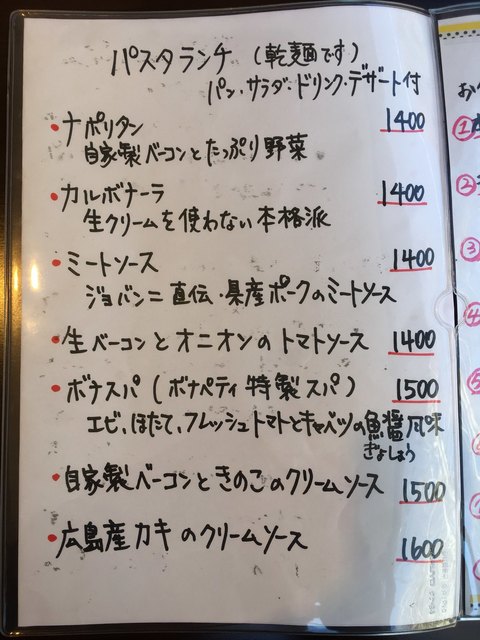 パスタランチ (乾麺です)
パン・サラダ・ドリンク・デザート付
・ナポリタン 1400
自家製ベーコンとたっぷり野菜
・カルボナーラ 1400
生クリームを使わない本格派
・ミートソース 1400
ジョバンニ直伝・県産ポークのミートソース
・生ベーコンとオニオンのトマトソース 1400
・ボナスパ (ボナペティ特製スパ) 1500
エビ、ほたて、フレッシュトマトとキャベツの魚醤風味
ぎょしょう
・自家製ベーコンときのこのクリームソース 1500
・広島産カキのクリームソース 1600
お
①
②
③
④
⑤